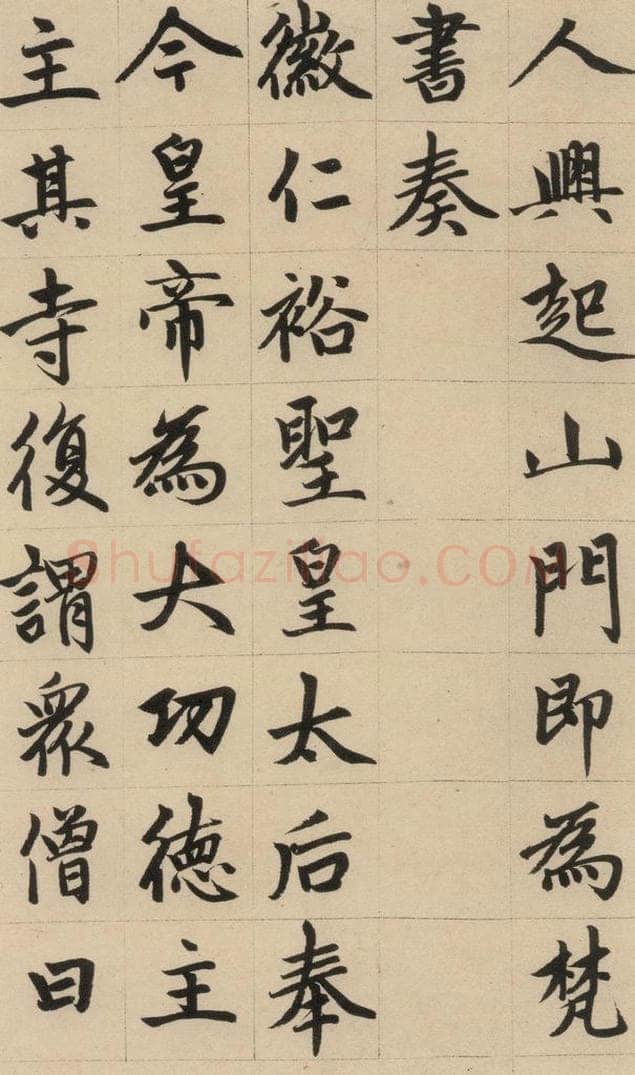 人興起山門即為梵
書奏
徽仁裕聖皇太后奉
今皇帝為大功德主
主其寺復謂眾僧曰
Shufaziliao.COM